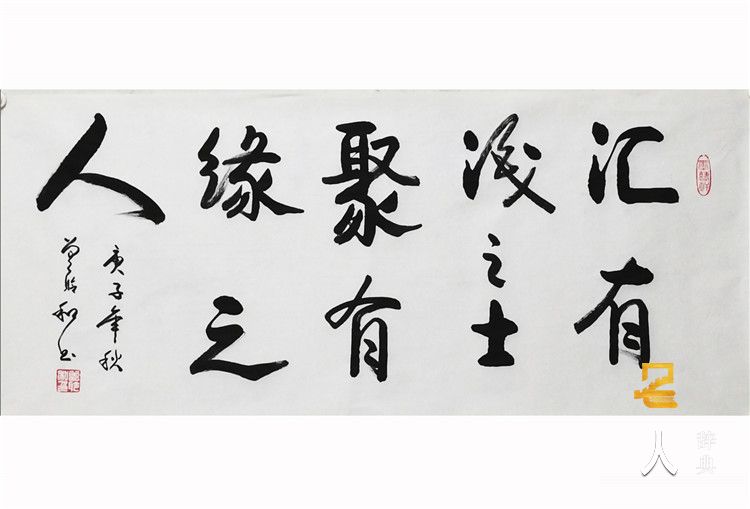 汇有
識之士
聚有
缘之
人
庚子年秋
和书
人
辞典